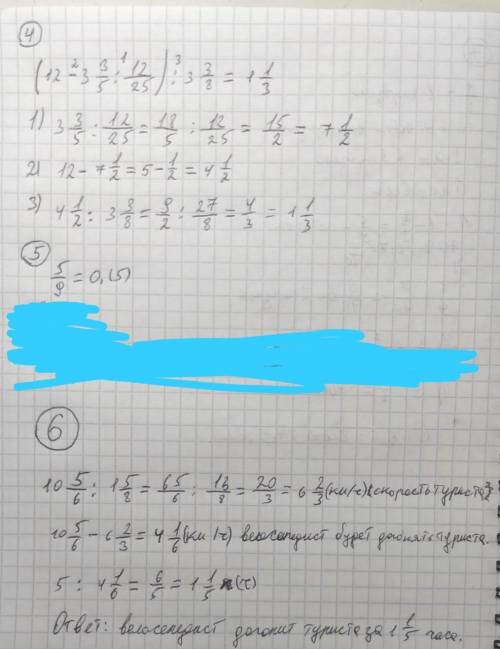 4
(12 - 3 3/5 : 12/25) : 3 3/8 = 1 1/3
1) 3 3/5 : 12/25 = 18/5 : 12/25 = 15/2 = 7 1/2
2) 12 - 7 1/2 = 5 - 1/2 = 4 1/2
3) 4 1/2 : 3 3/8 = 9/2 : 27/8 = 4/3 = 1 1/3
5
5/9 = 0,(5)
6
10 5/6 : 1 5/8 = 65/6 : 13/8 = 20/3 = 6 2/3 (км/ч) (скорость туриста)
10 5/6 - 6 2/3 = 4 1/6 (км/ч) велосипедист будет догонять туриста.
5 : 4 1/6 = 6/5 = 1 1/5 (ч)
Ответ: велосепедист догонит туриста за 1 1/5 часа.